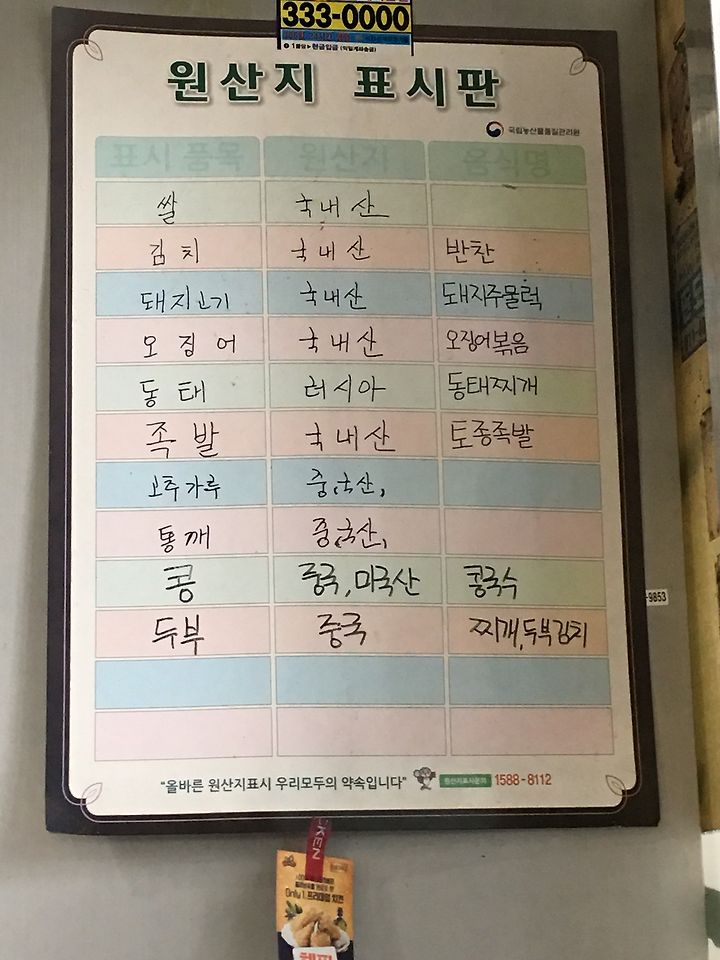 333-0000
원산지 표시판
국립농산물품질관리원
표시 품목 원산지 음식명
쌀 국내산
김치 국내산 반찬
돼지고기 국내산 돼지주물럭
오징어 국내산 오징어볶음
동태 러시아 동태찌개
족발 국내산 토종족발
고추가루 중국산,
통깨 중국산,
콩 중국,미국산 콩국수
두부 중국 찌개,두부김치
-9853
"올바른 원산지표시 우리모두의 약속입니다" 원산지표시문의 1588-8112
CKEN
Only 1 프리미엄 치킨